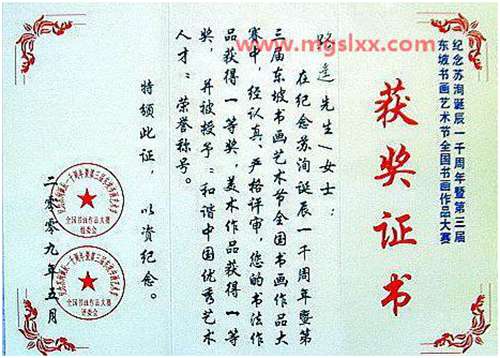 www.mgslxx.com
纪念苏洵诞辰一千周年暨第三届
东坡书画艺术节全国书画作品大赛
获奖证书
路遥先生/女士:
在纪念苏洵诞辰一千周年暨第
三届东坡书画艺术节全国书画作品大
赛中,经认真、严格评审,您的书法作
品获得一等奖,美术作品获得一等
奖,并被授予“和谐中国优秀艺术
人才”荣誉称号。
特颁此证,以资纪念。
二〇〇九年五月
全国书画作品大赛
组委会
全国书画作品大赛
评委会